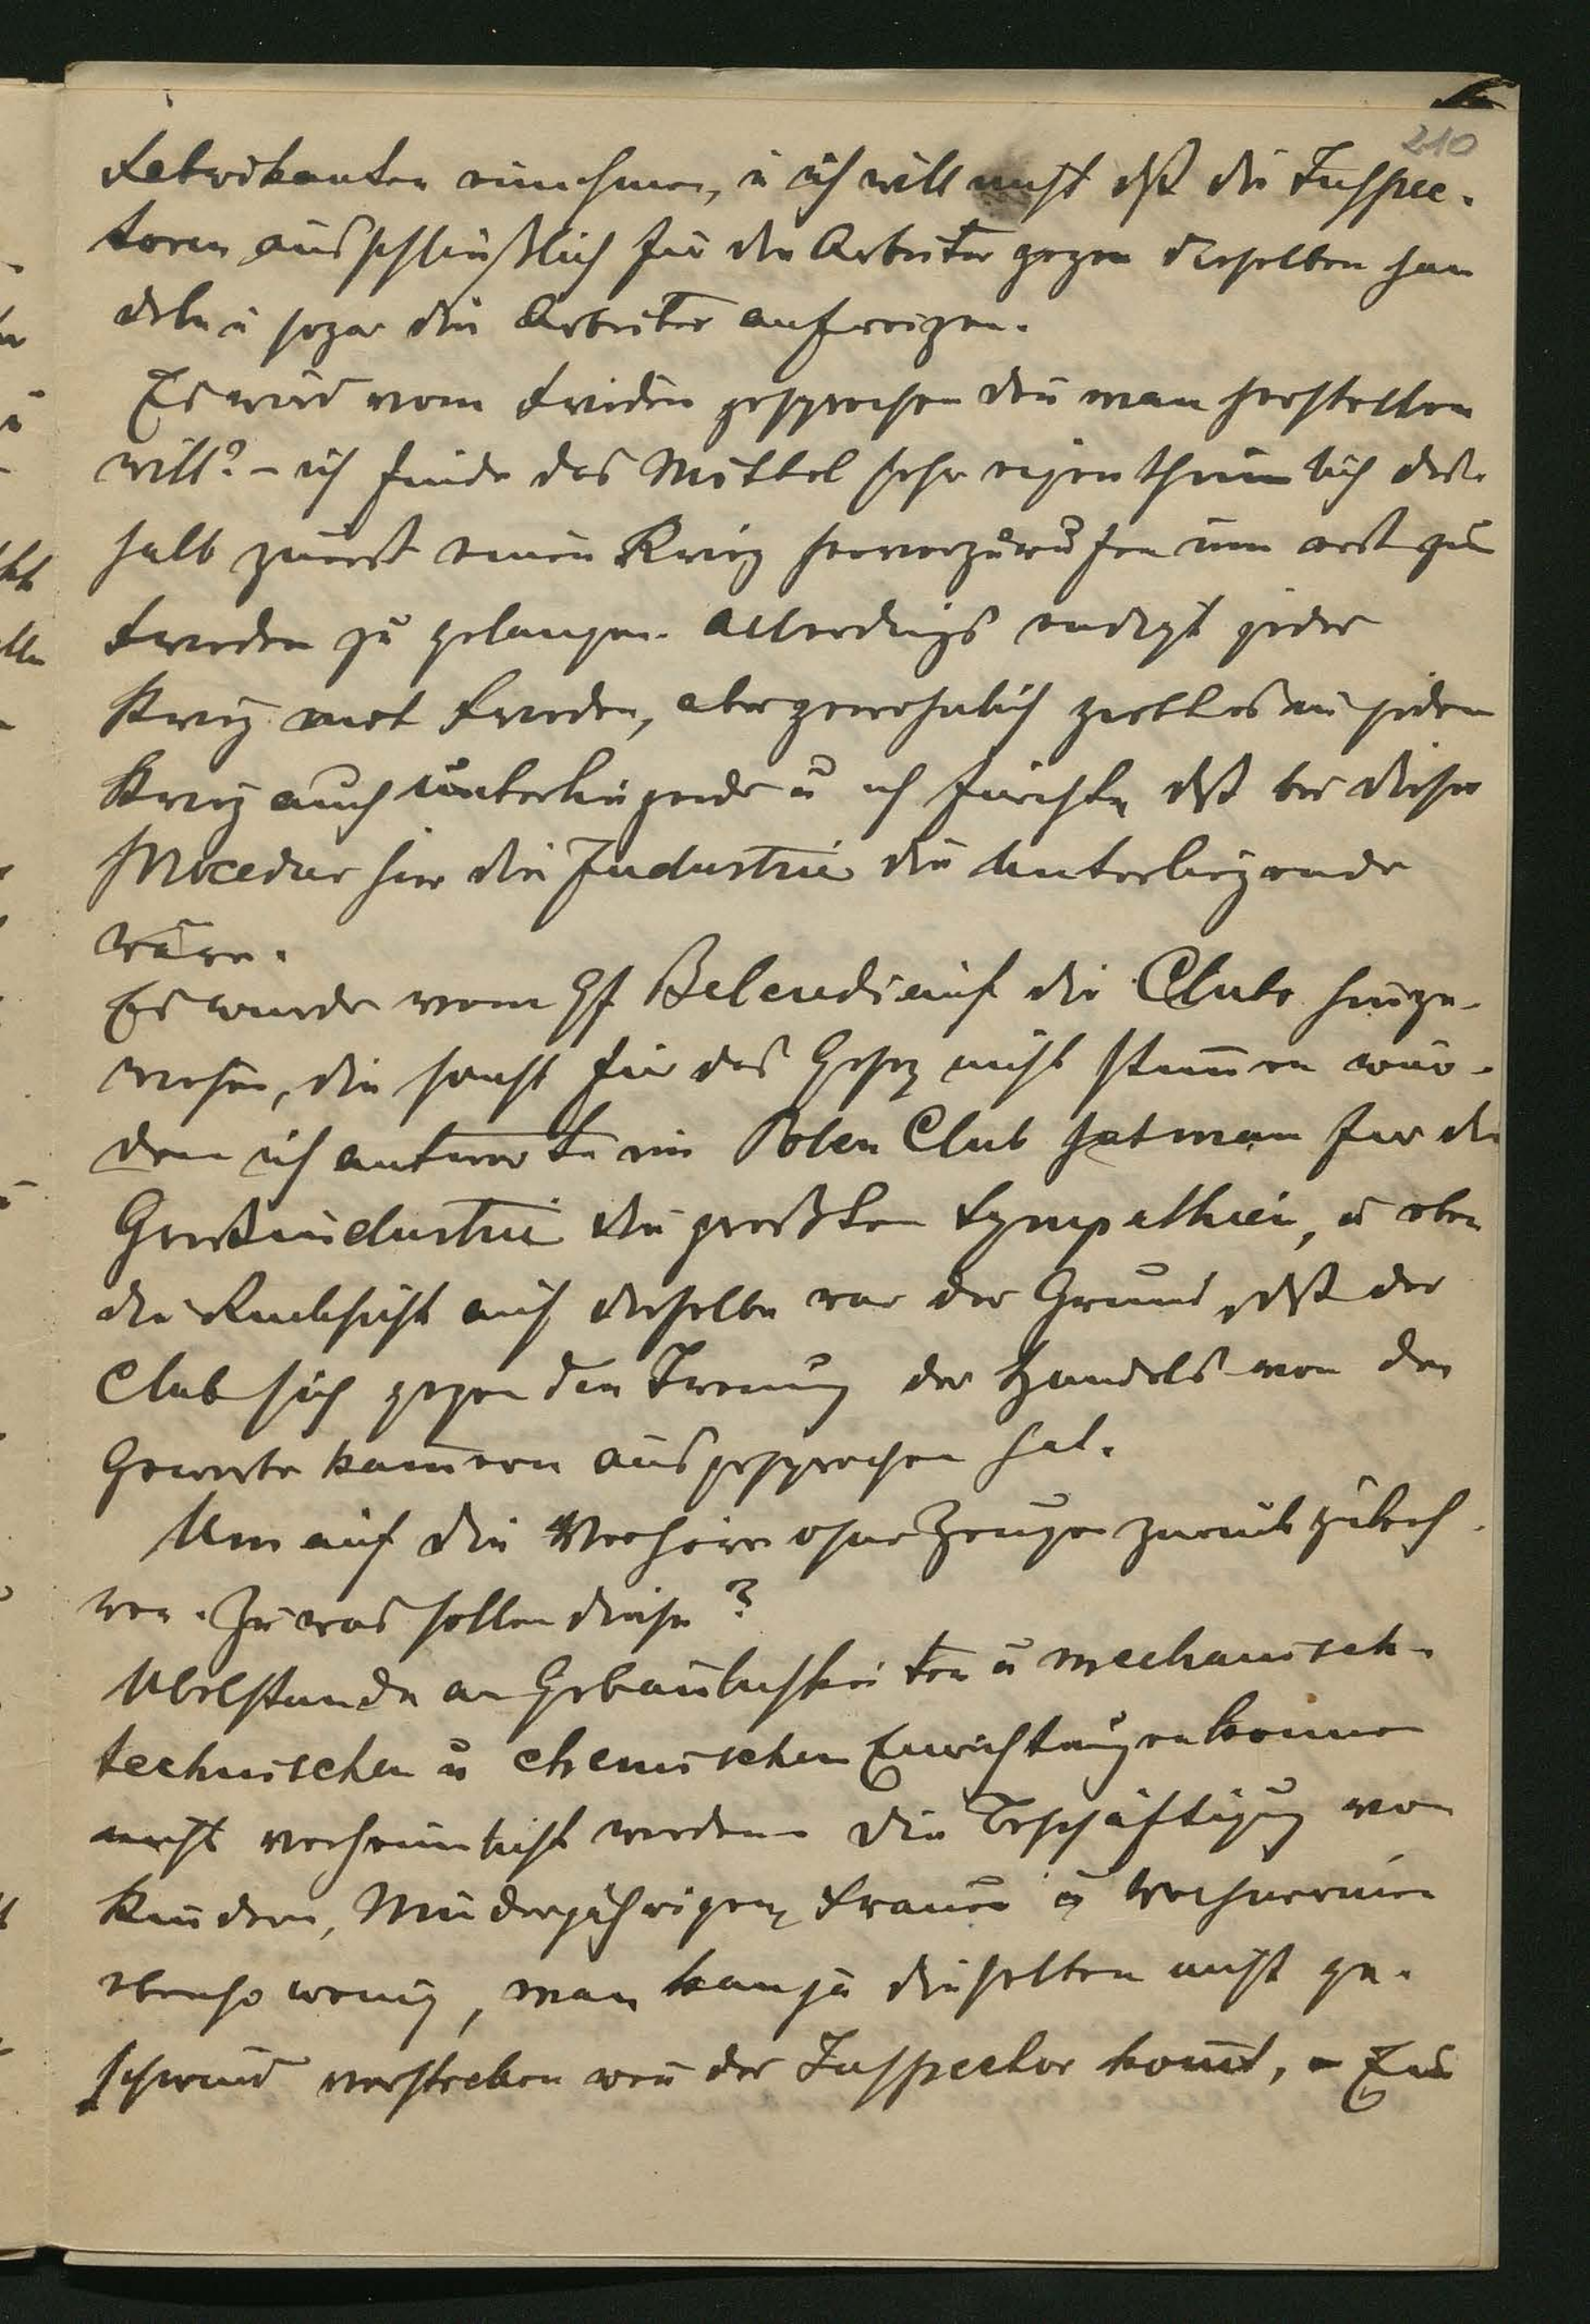 210
Fabrikanten einnehmen, u ich will nicht dß die Inspec-
toren ausschließlich für die Arbeiter gegen dieselben han
deln u sogar die Arbeiter aufreizen.
Es wird vom Frieden gesprochen den man herstellen
will? – ich finde das Mittel sehr eigenthümlich des
halb zuerst einen Krieg hervorzurufen um erst zum
Frieden zu gelangen. Allerdings endigt jeder
Krieg mit Frieden, aber gewöhnlich giebt es in jedem
Krieg auch unterliegende u ich fürchte dß bei dieser
Procedur hier die Industrie die Unterliegende
wäre.
Es wurde vom Gf Belcredi auf die Clubs hinge-
wiesen, die sonst für das Gesez nicht stimen wür-
den ich antworte im Polen Club hat man fur die
Großindustrie die großten Sympathien, u eben
die Rucksicht auf dieselbe war der Grund dß der
Club sich gegen den Trenung der Handels von den
Gewerbe kamern ausgesprochen hat.
Um auf die Verhöre ohne Zeugen zurückzukeh
ren. Zu was sollen diese?
Ubelstande an Gebaulichkeiten u mechanisch-
technischen u chemischen Einrichtungen konnen
nicht verheimlicht werden die Beschäftigung von
Kindern, Minderjährigen, Frauen u Wöchnerinen
ebenso wenig, man kan ja dieselben nicht ge-
schwind verstecken wen der Inspector komt, – Zum